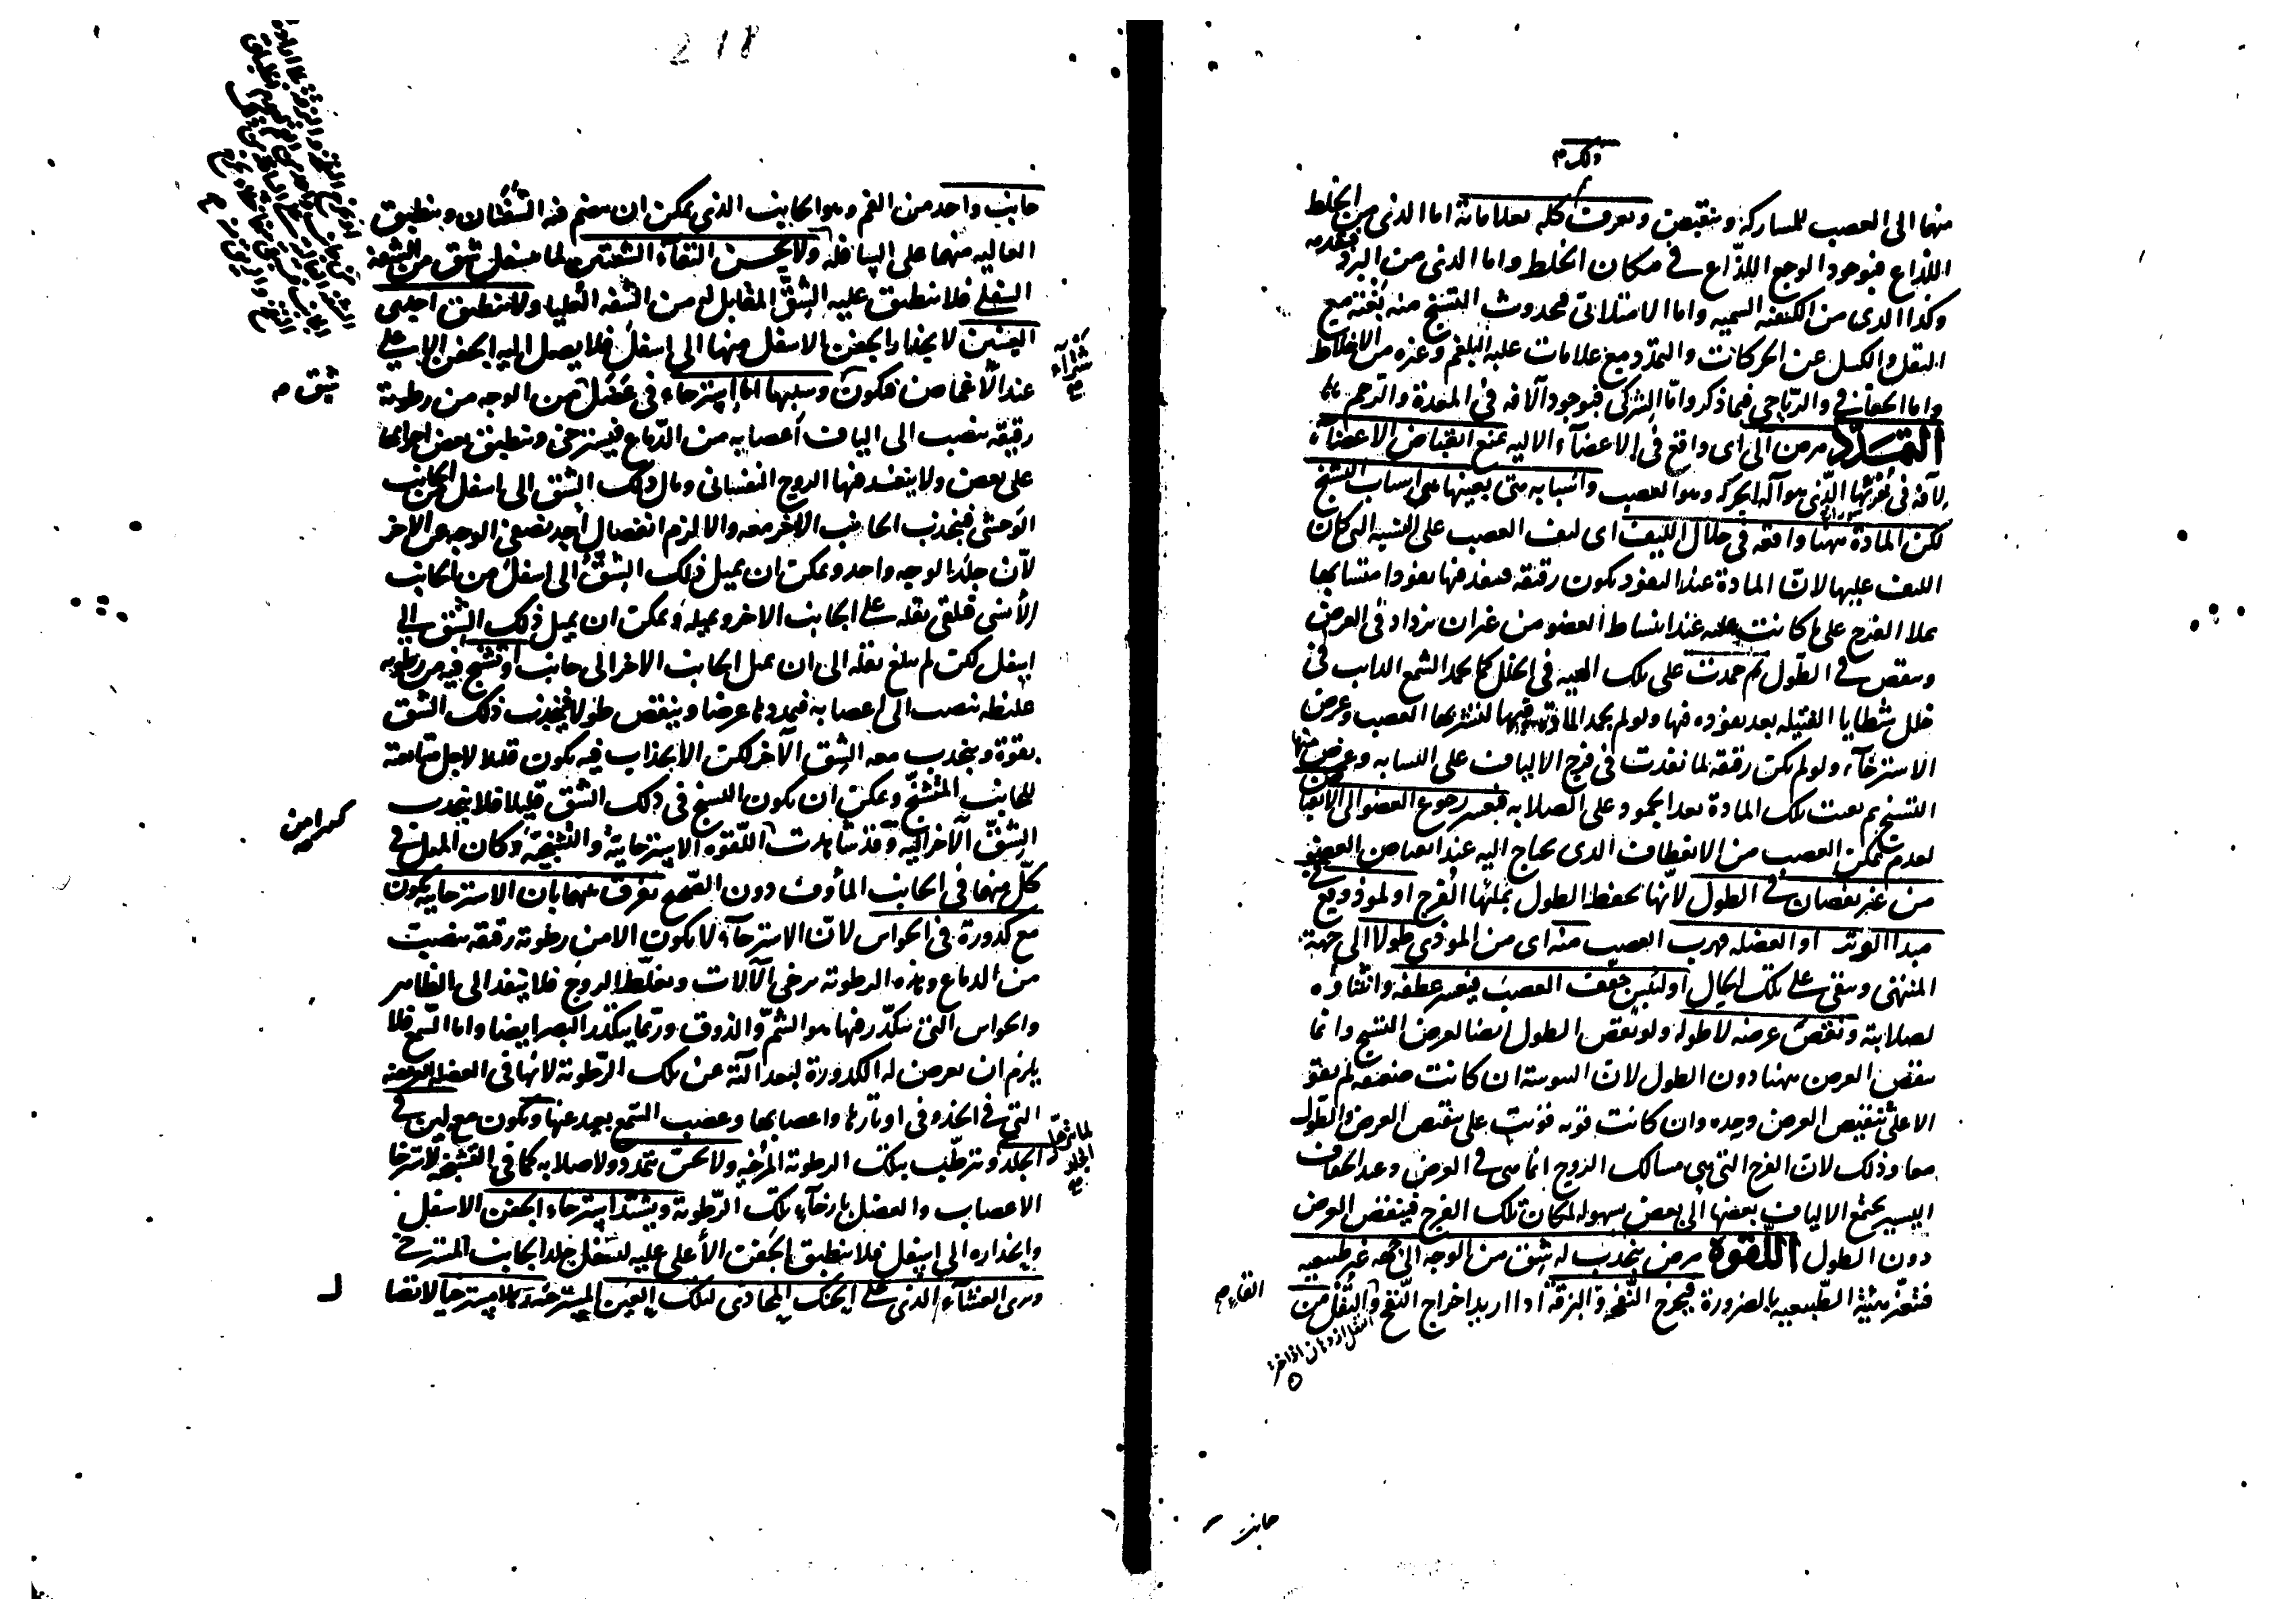 ذلك
منها الى العصب للمشاركة وينقبض ويعرف كله بعلاماته اما الذى من الخلط
اللذاع فبوجود الوجع اللذاع فى مكان الخلط واما الذى من البرد فبتقدمه
وكذا الذى من الكيفيه السميه واما الامتلائى فبحدوث التشنج منه بغتة مع
الثقل والكسل عن الحركات والتمدد مع علامات غلبه البلغم وغيره من الاخلاط
واما الجفافى والرياحى فبما ذكر واما الشركى فبوجود الافه فى المعدة والرحم
التمدد مرض آلى اى واقع فى الاعضآء الاليه يمنع انقباض الاعضآء
لآفة فى قوتها الذى هو آلة الحركه وهو العصب واسبابه هى بعينها هى اسباب التشنج
لكن المادة ههنا واقعه فى خلال الليف اى ليف العصب على النسبه التى كان
الليف عليها لان المادة عند النفوذ يكون رقيقه فينفذ فيها نفوذا متشابها
يملا الفرج على ما كانت عليه عند انبساط العضو من غير ان يزداد فى العرض
وينقص فى الطول ثم جمدت على تلك الهيه فى الخلل كما يجمد الشمع الذايب فى
خلل شظايا الفتيله بعد نفوذه فيها ولو لم يجمد المادة فيها لتشربها العصب وعرض
الاسترخآء ولو لم يكن رقيقه لما نفذت فى فرج الالياف على التشابه وعرض منها
التشنج ثم بقيت تلك المادة بعد الجمود على الصلابه فيعسر رجوع العضو الى الانقباض
لعدم تمكن العصب من الانعطاف الذى يحتاج اليه عند انقباض العضو
من غير نقصان فى الطول لانها يحفظ الطول بملئها الفرج او لموذ وقع فى
مبدا الوتر او العضله فهرب العصب منه اى من الموذى طولا الى جهة
المنتهى وبقى على تلك الحال او ليبس جفف العصب فيعسر عطفه وانثناؤه
لصلابته ونقص عرضه لا طوله ولو نقص الطول ايضا لعرض التشنج وانما
ينقص العرض ههنا دون الطول لان اليبوسة ان كانت ضعيفه لم يقو
الا على تنقيص العرض وحده وان كانت قويه قويت على تنقيص العرض والطول
معا وذلك لان الفرج التى هى مسالك الروح انما هى فى العرض وعند الجفاف
اليسير يجتمع الالياف بعضها الى بعض بسهوله لمكان تلك الفرج فينقص العرض
دون الطول اللقوة مرض ينجذب له شق من الوجه الى جهة غير طبيعيه
فتتغير هيئته الطبيعيه بالضرورة فيخرج النفخ والبزقة اذا اريد اخراج النفخ والتفل من
جانب
218
جانب واحد من الفم وهو الجانب الذى يمكن ان ينضم فيه الشفتان وينطبق
العاليه منهما على السافله ولا يحسن التقآء الشفتين لما يسفل شق من الشفة
السفلى فلا ينطبق عليه الشق المقابل له من الشفه العليا ولا ينطبق احدى
العينين لانحدار الجفن الاسفل منها الى اسفل فلا يصل اليه الجفن الاعلى
عند الاغماض فيكون وسببها اما استرخاء فى عضل من الوجه من رطوبة
رقيقه ينصب الى الياف اعصابه من الدماغ فيسترخى وينطبق بعض اجزائها
على بعض ولا ينفذ فيها الروح النفسانى ومال ذلك الشق الى اسفل من الجانب
الوحشى فينجذب الجانب الاخر معه والا لزم انفصال احد نصفى الوجه عن الاخر
لان جلد الوجه واحد ويمكن ان يميل ذلك الشق الى اسفل من الجانب
الانسى فيلقى ثقله على الجانب الاخر ويميله ويمكن ان يميل ذلك الشق الى
اسفل لكن لم يبلغ ثقله الى ان يميل الجانب الاخر الى جانب او تشنج فيه من رطوبه
غليظه تنصب الى اعصابه فيمدد لها عرضا وينقص طولا فينجذب ذلك الشق
بقوة وينجذب معه الشق الآخر لكن الانجذاب فيه يكون قليلا لاجل متابعة
للجانب المتشنج ويمكن ان يكون التشنج فى ذلك الشق قليلا فلا ينجذب
الشق الآخر اليه وقد شاهدت اللقوه الاسترخاية والتشنجية وكان الميل فى
كل منهما فى الجانب المأوف دون الصحيح يفرق بينهما بان الاسترخايه يكون
مع كدورة فى الحواس لان الاسترخآء لا يكون الا من رطوبة رقيقه ينصب
من الدماغ وهذه الرطوبة يرخى الآلات ويغلظ الروح فلا ينفذ الى الظاهر
والحواس التى يتكدر فيها هو الشم والذوق وربما يتكدر البصر ايضا واما السمع فلا
يلزم ان يعرض له الكدورة لبعد آلته عن تلك الرطوبة لانها فى العضله العريضه
التى فى الخد وفى اوتارها واعصابها وعصب السمع بعيد عنها ويكون مع لين فى
الجلد وترطب بتلك الرطوبة المرخيه ولا يحس بتمدد ولا صلابه كما فى التشنجيه لاسترخا
الاعصاب والعضل بارخآء تلك الرطوبة ويشتد استرخاء الجفن الاسفل
وانحداره الى اسفل فلا ينطبق الجفن الاعلى عليه لتسفل جلد الجانب المسترخى
ويرى الغشآء الذى على الحنك المحاذى لتلك العين المسترخيه
شق